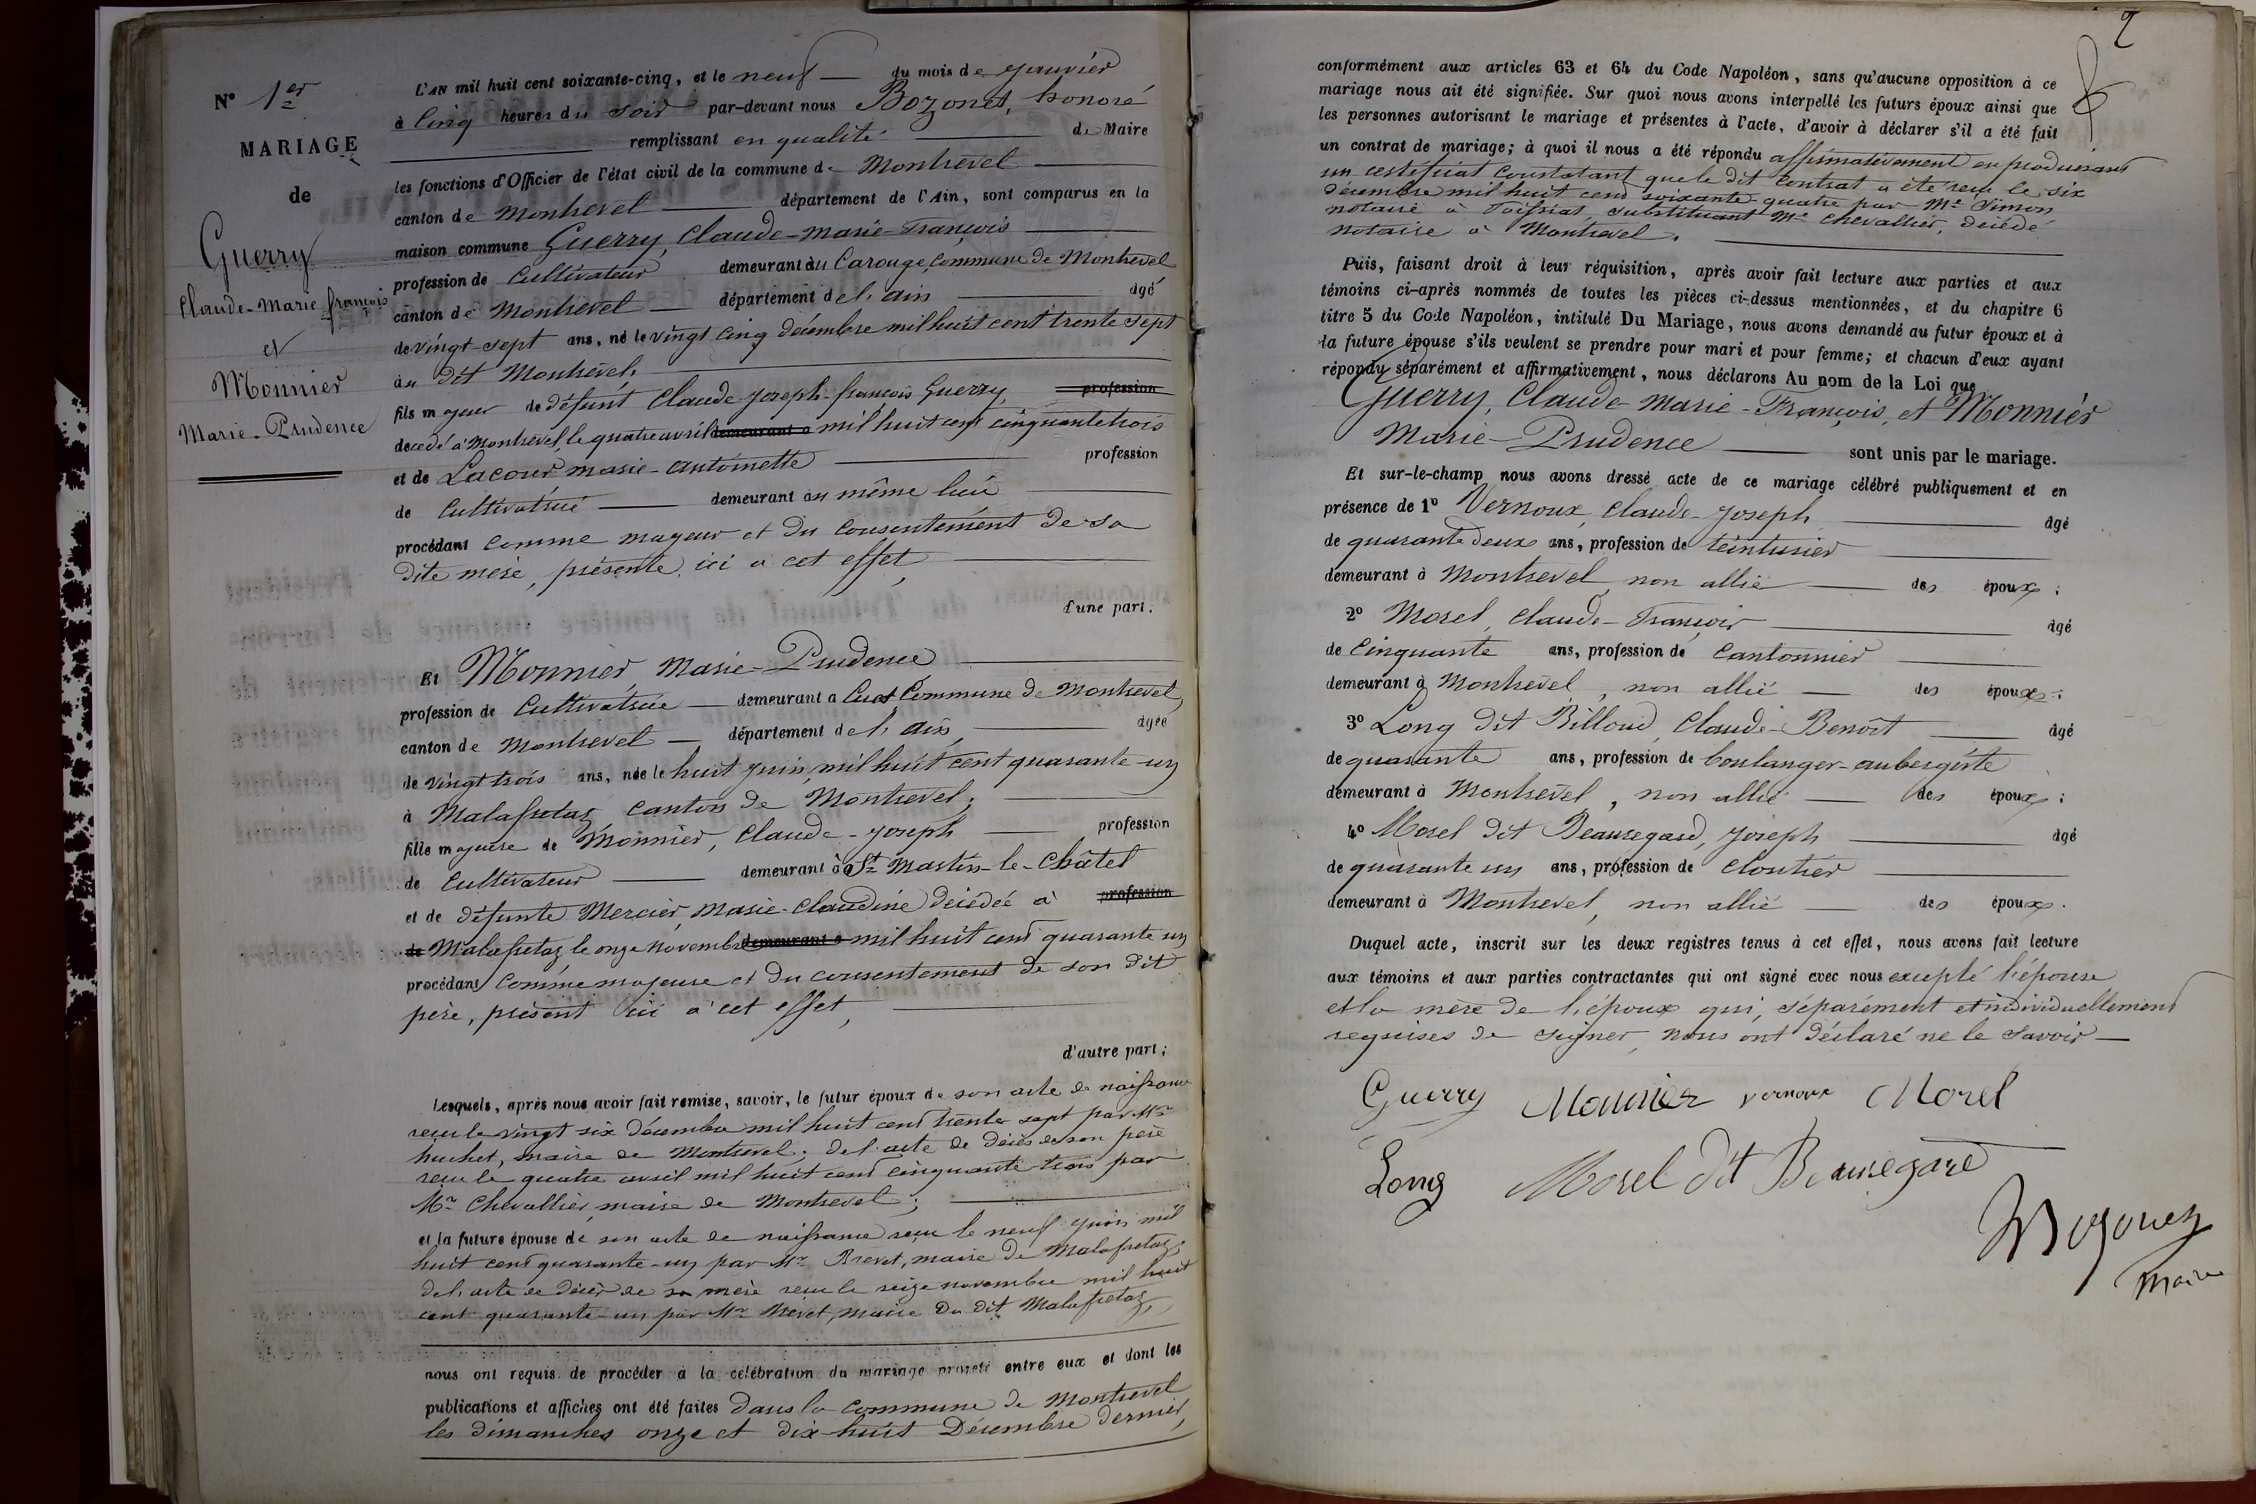 N° 1er
MARIAGE
de
Guerry
Claude-Marie-françois
et
Monnier
Marie-Prudence
L'AN mil huit cent soixante-cinq, et le neuf du mois de Janvier
à Cinq heures du soir par-devant nous Bozonet, honoré
remplissant en qualité de Maire
les fonctions d'Officier de l'état civil de la commune de Montrevel
canton de Montrevel département de l'Ain, sont comparus en la
maison commune Guerry, Claude-marie-François
profession de Cultivateur demeurant au Carouge, Commune de Montrevel
canton de Montrevel département de l'ain âgé
de vingt-sept ans, né le vingt cinq décembre mil huit cent trente sept
au dit Montrevel,
fils majeur de défunt Claude-joseph-françois Guerry, profession
decédé à Montrevel, le quatre avril demeurant à mil huit cent cinquante trois
et de Lacour marie-antoinette profession
de Cultivatrice demeurant au même lieu
procédant comme majeur et du consentement de sa
dite mère, présente ici à cet effet,
d'une part;
Et Monnier, Marie-Prudence
profession de Cultivatrice demeurant à Cuet, Commune de Montrevel,
canton de Montrevel département de l'ain, âgée
de vingt trois ans, née le huit juin, mil huit cent quarante-un
à Malafretaz, canton de Montrevel;
fille majeure de Monnier, Claude-joseph profession
de Cultivateur demeurant à St Martin-le-Châtel
et de défunte Mercier, Marie-Claudine décédée à profession
de Malafretaz, le onze novembre demeurant à mil huit cent quarante un
procédant comme majeure et du consentement de son dit
père, présent ici à cet effet,
d'autre part;
Lesquels, après nous avoir fait remise, savoir, le futur époux de son acte de naissance
reçu le vingt six décembre mil huit cent trente sept par Mr
huchet, maire de Montrevel; de l'acte de décès de son père
reçu le quatre avril mil huit cent cinquante trois par
Mr Chevallier, maire de Montrevel;
et la future épouse de son acte de naissance reçu le neuf juin mil
huit cent quarante-un par Mr Brevet, maire de Malafretaz;
de l'acte de décès de sa mère reçu le seize novembre mil huit
cent quarante-un par Mr Brevet, maire du dit Malafretaz,
nous ont requis de procéder à la célébration du mariage projeté entre eux et dont les
publications et affiches ont été faites dans la commune de Montrevel
les dimanches onze et dix-huit Décembre dernier,
2
conformément aux articles 63 et 64 du Code Napoléon, sans qu'aucune opposition à ce
mariage nous ait été signifiée. Sur quoi nous avons interpellé les futurs époux ainsi que
les personnes autorisant le mariage et présentes à l'acte, d'avoir à déclarer s'il a été fait
un contrat de mariage; à quoi il nous a été répondu affirmativement en produisant
un certificat constatant que le dit contrat a été reçu le six
décembre mil huit cent soixante-quatre par Me Simon
notaire à Foissiat, substituant Me Chevallier, décédé
notaire à Montrevel.
Puis, faisant droit à leur réquisition, après avoir fait lecture aux parties et aux
témoins ci-après nommés de toutes les pièces ci-dessus mentionnées, et du chapitre 6
titre 5 du Code Napoléon, intitulé Du Mariage, nous avons demandé au futur époux et à
la future épouse s'ils veulent se prendre pour mari et pour femme; et chacun d'eux ayant
répondu séparément et affirmativement, nous déclarons Au nom de la Loi que
Guerry, Claude-Marie-François, et Monnier
Marie-Prudence sont unis par le mariage.
Et sur-le-champ nous avons dressé acte de ce mariage célébré publiquement et en
présence de 1° Vernoux, Claude-Joseph âgé
de quarante deux ans, profession de teinturier
demeurant à Montrevel, non allié des époux;
2° Morel, Claude-François âgé
de Cinquante ans, profession de Cantonnier
demeurant à Montrevel, non allié des époux;
3° Long dit Billoud, Claude-Benoit âgé
de quarante ans, profession de boulanger-aubergiste
demeurant à Montrevel, non allié des époux;
4° Morel dit Beauregard, joseph âgé
de quarante un ans, profession de Cloutier
demeurant à Montrevel, non allié des époux.
Duquel acte, inscrit sur les deux registres tenus à cet effet, nous avons fait lecture
aux témoins et aux parties contractantes qui ont signé avec nous excepté l'épouse
et la mère de l'époux qui, séparément et individuellement
requises de signer, nous ont déclaré ne le savoir
Guerry Mounier vernoux Morel
Long Morel dit Beauregard
Bozonet
Maire